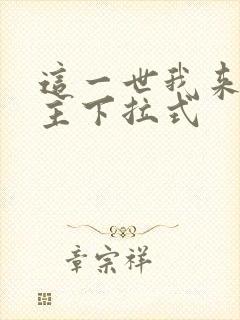 這一世我來
主下拉式
章宗祥